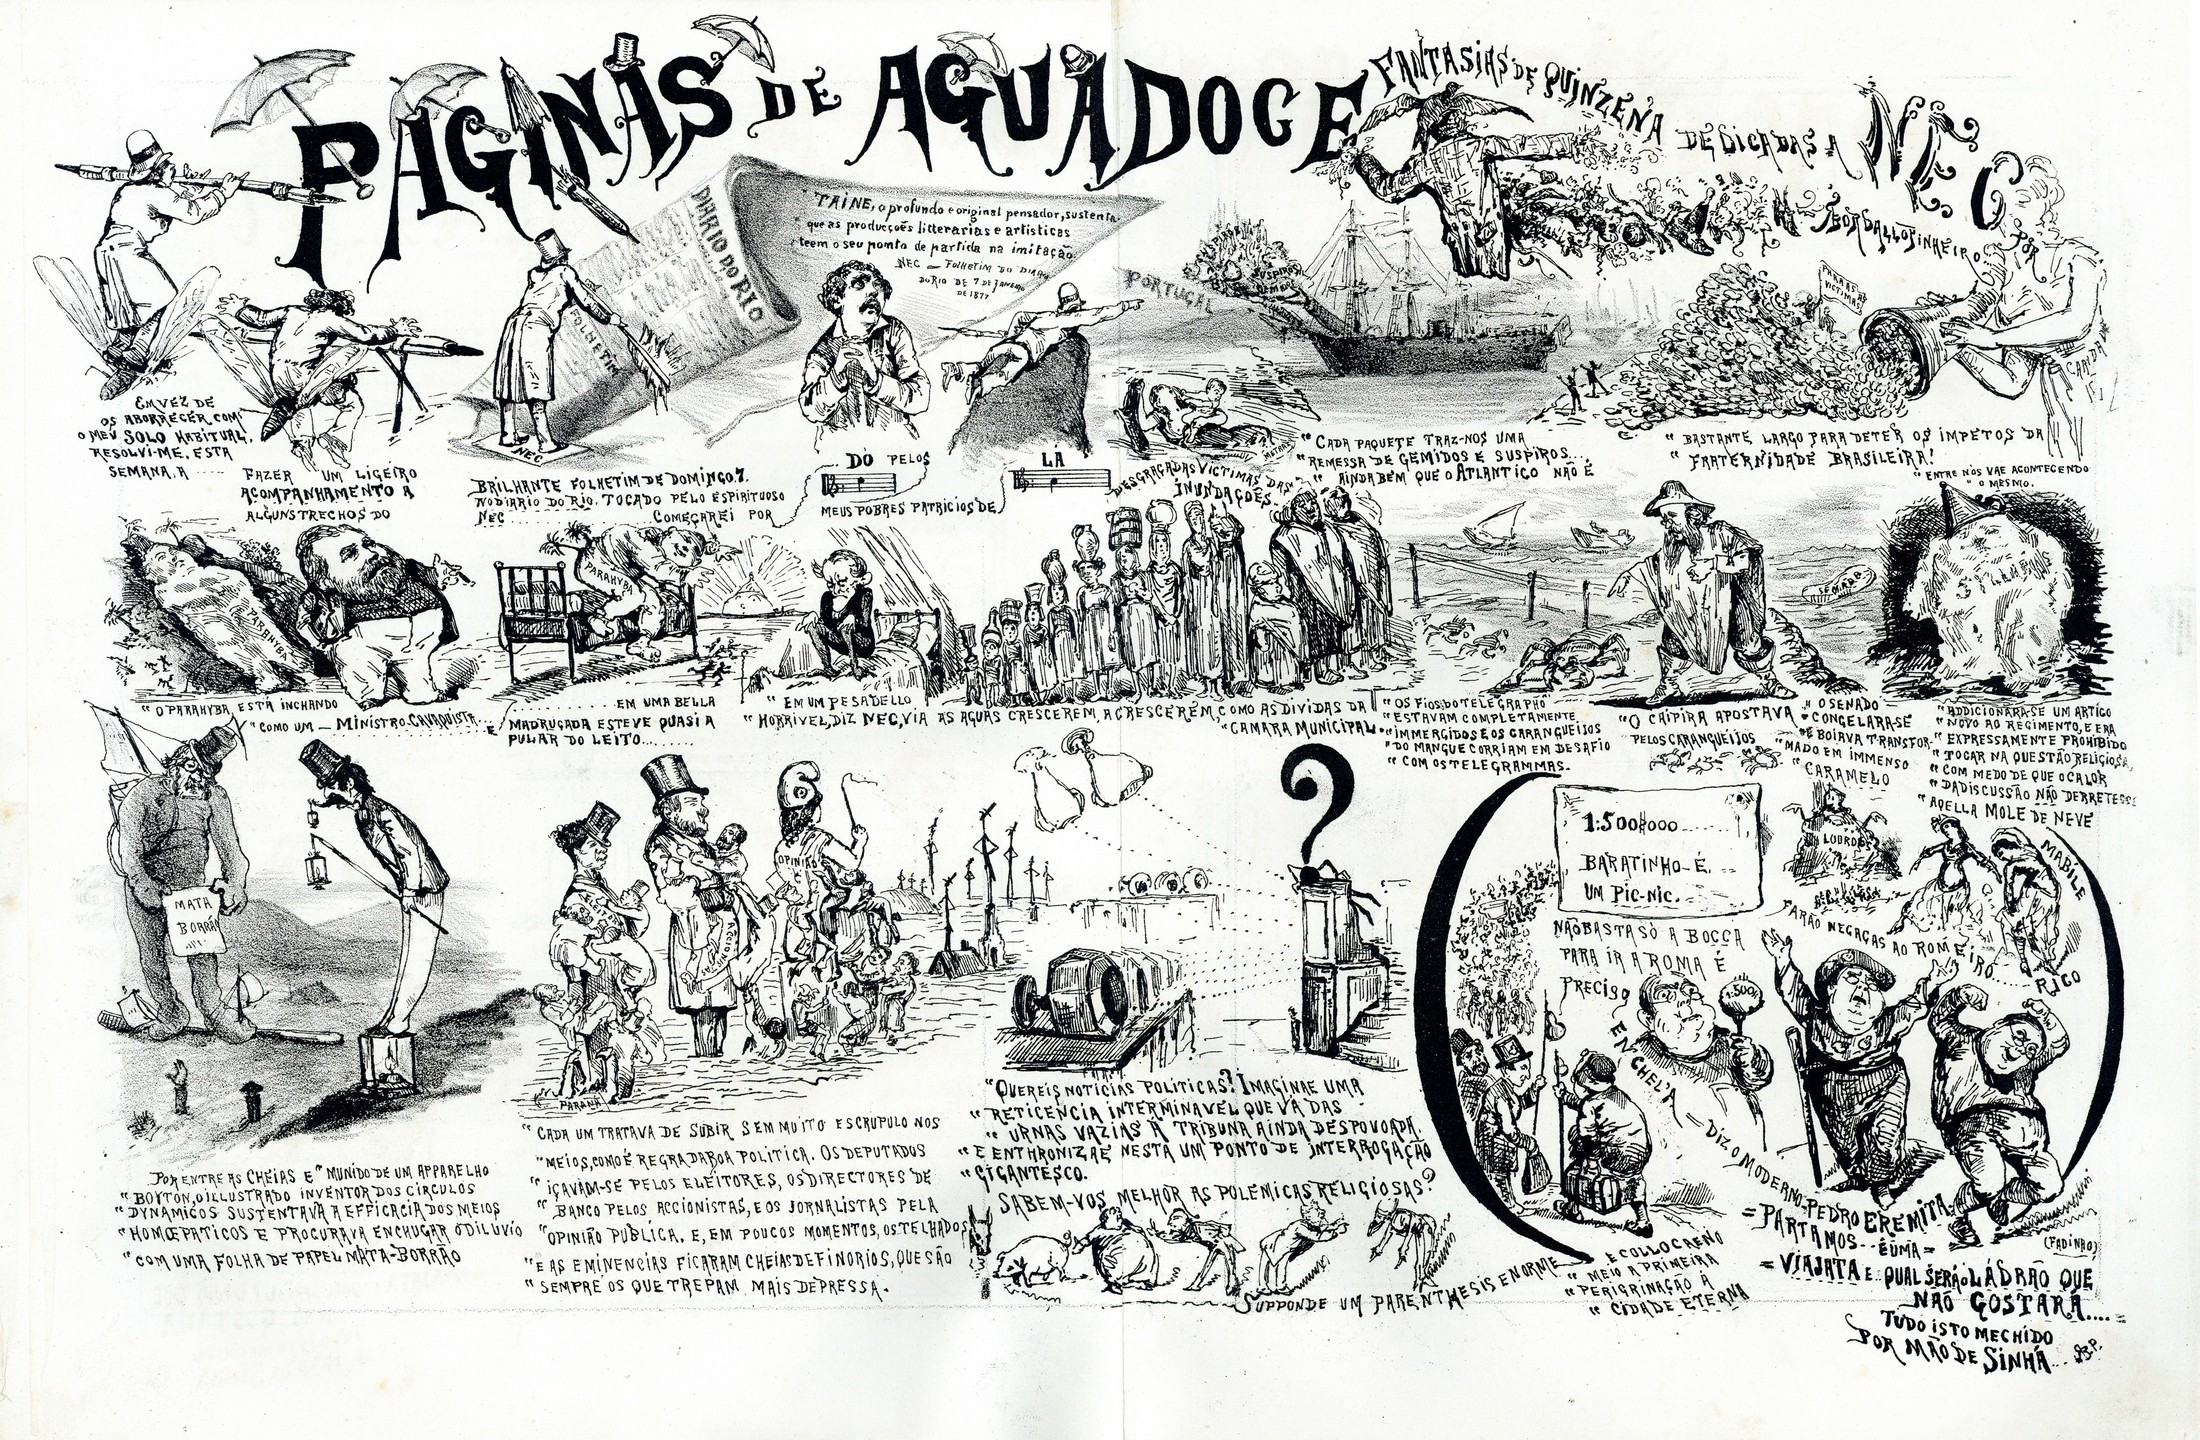 PAGINAS DE AGUADOCE
FANTASIAS DE QUINZENA
DEDICADAS A NEC
POR
BORDALLO PINHEIRO
DIARIO DO RIO
FOLHETIM
"TAINE, o profundo e original pensador, sustenta
que as producções litterarias e artisticas
teem o seu ponto de partida na imitação
NEC — FOLHETIM DO DIARIO
DO RIO DE 7 DE JANEIRO
DE 1877
NEC
EM VEZ DE
OS ABORRECER COM
O MEU SOLO HABITUAL,
RESOLVI-ME, ESTA
SEMANA, A .....
FAZER UM LIGEIRO
ACOMPANHAMENTO A
ALGUNS TRECHOS DO
BRILHANTE FOLHETIM DE DOMINGO 7.
NO DIARIO DO RIO. TOCADO PELO ESPIRITUOSO
NEC .......... COMEÇAREI POR
DÓ PELOS
MEUS POBRES PATRICIOS DE
LÁ
DESGRAÇADAS VICTIMAS DAS
INUNDAÇÕES.
PORTUGAL
SUSPIROS
"CADA PAQUETE TRAZ-NOS UMA
"REMESSA DE GEMIDOS E SUSPIROS...
"AINDA BEM QUE O ATLANTICO NÃO É
PARA AS
VICTIMAS
CARIDADE
"BASTANTE LARGO PARA DETER OS IMPETOS DA
"FRATERNIDADE BRASILEIRA!
"ENTRE NÓS VAE ACONTECENDO
"O MESMO.
PARAHYBA
"O PARAHYBA ESTÁ INCHANDO
"COMO UM — MINISTRO CAVAQUISTA...
PARAHYBA
E ........ EM UMA BELLA
MADRUGADA ESTEVE QUASI A
PULAR DO LEITO........
"EM UM PESADELLO
"HORRIVEL, DIZ NEC, VIA AS AGUAS CRESCEREM, A CRESCEREM, COMO AS DIVIDAS DA
"CAMARA MUNICIPAL.
"OS FIOS DO TELEGRAPHO
"ESTAVAM COMPLETAMENTE
"IMMERGIDOS E OS CARANGUEIJOS
"DO MANGUE CORRIAM EM DESAFIO
"COM OS TELEGRAMMAS.
SENADO
"O CAIPIRA APOSTAVA
"PELOS CARANGUEIJOS
"O SENADO
"CONGELARA-SE
"E BOIAVA TRANSFOR-
"MADO EM IMMENSO
"CARAMELO
"ADDICIONARA-SE UM ARTIGO
"NOVO AO REGIMENTO, E ERA
"EXPRESSAMENTE PROHIBIDO
"TOCAR NA QUESTÃO RELIGIOSA,
"COM MEDO DE QUE O CALOR
"DA DISCUSSÃO NÃO DERRETESSE
"AQELLA MOLE DE NEVE
MATA
BORRÃO
POR ENTRE AS CHEIAS E MUNIDO DE UM APPARELHO
"BOYTON, O ILLUSTRADO INVENTOR DOS CIRCULOS
"DYNAMICOS SUSTENTAVA A EFFICACIA DOS MEIOS
"HOMŒPATICOS E PROCURAVA ENCHUGAR O DILUVIO
"COM UMA FOLHA DE PAPEL MATA-BORRÃO
OPINIÃO
PARANÁ
"CADA UM TRATAVA DE SUBIR SEM MUITO ESCRUPULO NOS
"MEIOS, COMO É REGRA DA BOA POLITICA. OS DEPUTADOS
"IÇAVAM-SE PELOS ELEITORES, OS DIRECTORES DE
"BANCO PELOS ACCIONISTAS, E OS JORNALISTAS PELA
"OPINIÃO PUBLICA. E, EM POUCOS MOMENTOS, OS TELHADOS
"E AS EMINENCIAS FICARAM CHEIAS DE FINORIOS, QUE SÃO
"SEMPRE OS QUE TREPAM MAIS DEPRESSA.
?
"QUEREIS NOTICIAS POLITICAS? IMAGINAE UMA
"RETICENCIA INTERMINAVEL QUE VÁ DAS
"URNAS VAZIAS Á TRIBUNA AINDA DESPOVOADA.
"E ENTHRONIZAE NESTA UM PONTO DE INTERROGAÇÃO
"GIGANTESCO.
SABEM-VOS MELHOR AS POLEMICAS RELIGIOSAS?
SUPPONDE UM PARENTHESIS ENORME
"E COLLOCAE NO
"MEIO A PRIMEIRA
"PERIGRINAÇÃO Á
"CIDADE ETERNA
1:500$000......
BARATINHO É.
UM PIC-NIC.
LOURDES
MABILE
NÃO BASTA SÓ A BOCCA
PARA IR A ROMA É
PRECISO
ENCHEL'A — DIZ O MODERNO PEDRO EREMITA
1:500$
FARÃO NEGAÇAS AO ROMEIRO...
RICO
= PARTAMOS... É UMA =
(FADINHO)
= VIAJATA E QUAL SERÁ O LADRÃO QUE
NÃO GOSTARÁ....
TUDO ISTO MECHIDO
POR MÃO DE SINHÁ...
B.P.